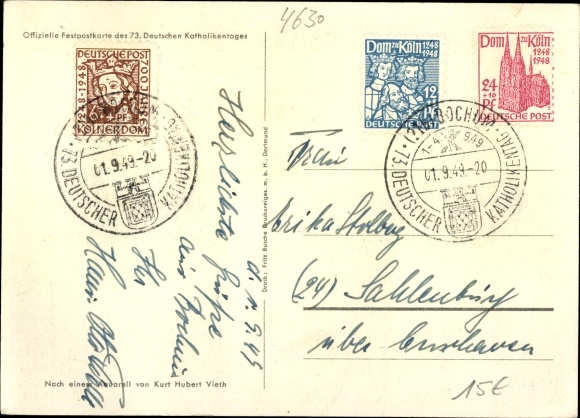 4630
Offizielle Festpostkarte des 73. Deutschen Katholikentages
DEUTSCHE POST
1248-1948
700 JAHRE
PF
KÖLNER DOM
Dom zu Köln 1248 1948
12
Pf
DEUTSCHE POST
Dom zu Köln
1248
1948
24
+16
PF
DEUTSCHE POST
(21b) BOCHUM
01.9.49-20
73. DEUTSCHER KATHOLIKENTAG
(21b) BOCHUM
1-4.9.49
01.9.49-20
73. DEUTSCHER KATHOLIKENTAG
d. 1.9.49
Herzlichste Grüße
aus Bochum
Ihr
Hans Otto
Druck: Fritz Busche Druckereiges. m. b. H., Dortmund
Frau
Erika Stolberg
(24) Sahlenburg
über Cuxhaven
Nach einem Aquarell von Kurt Hubert Vieth
15€